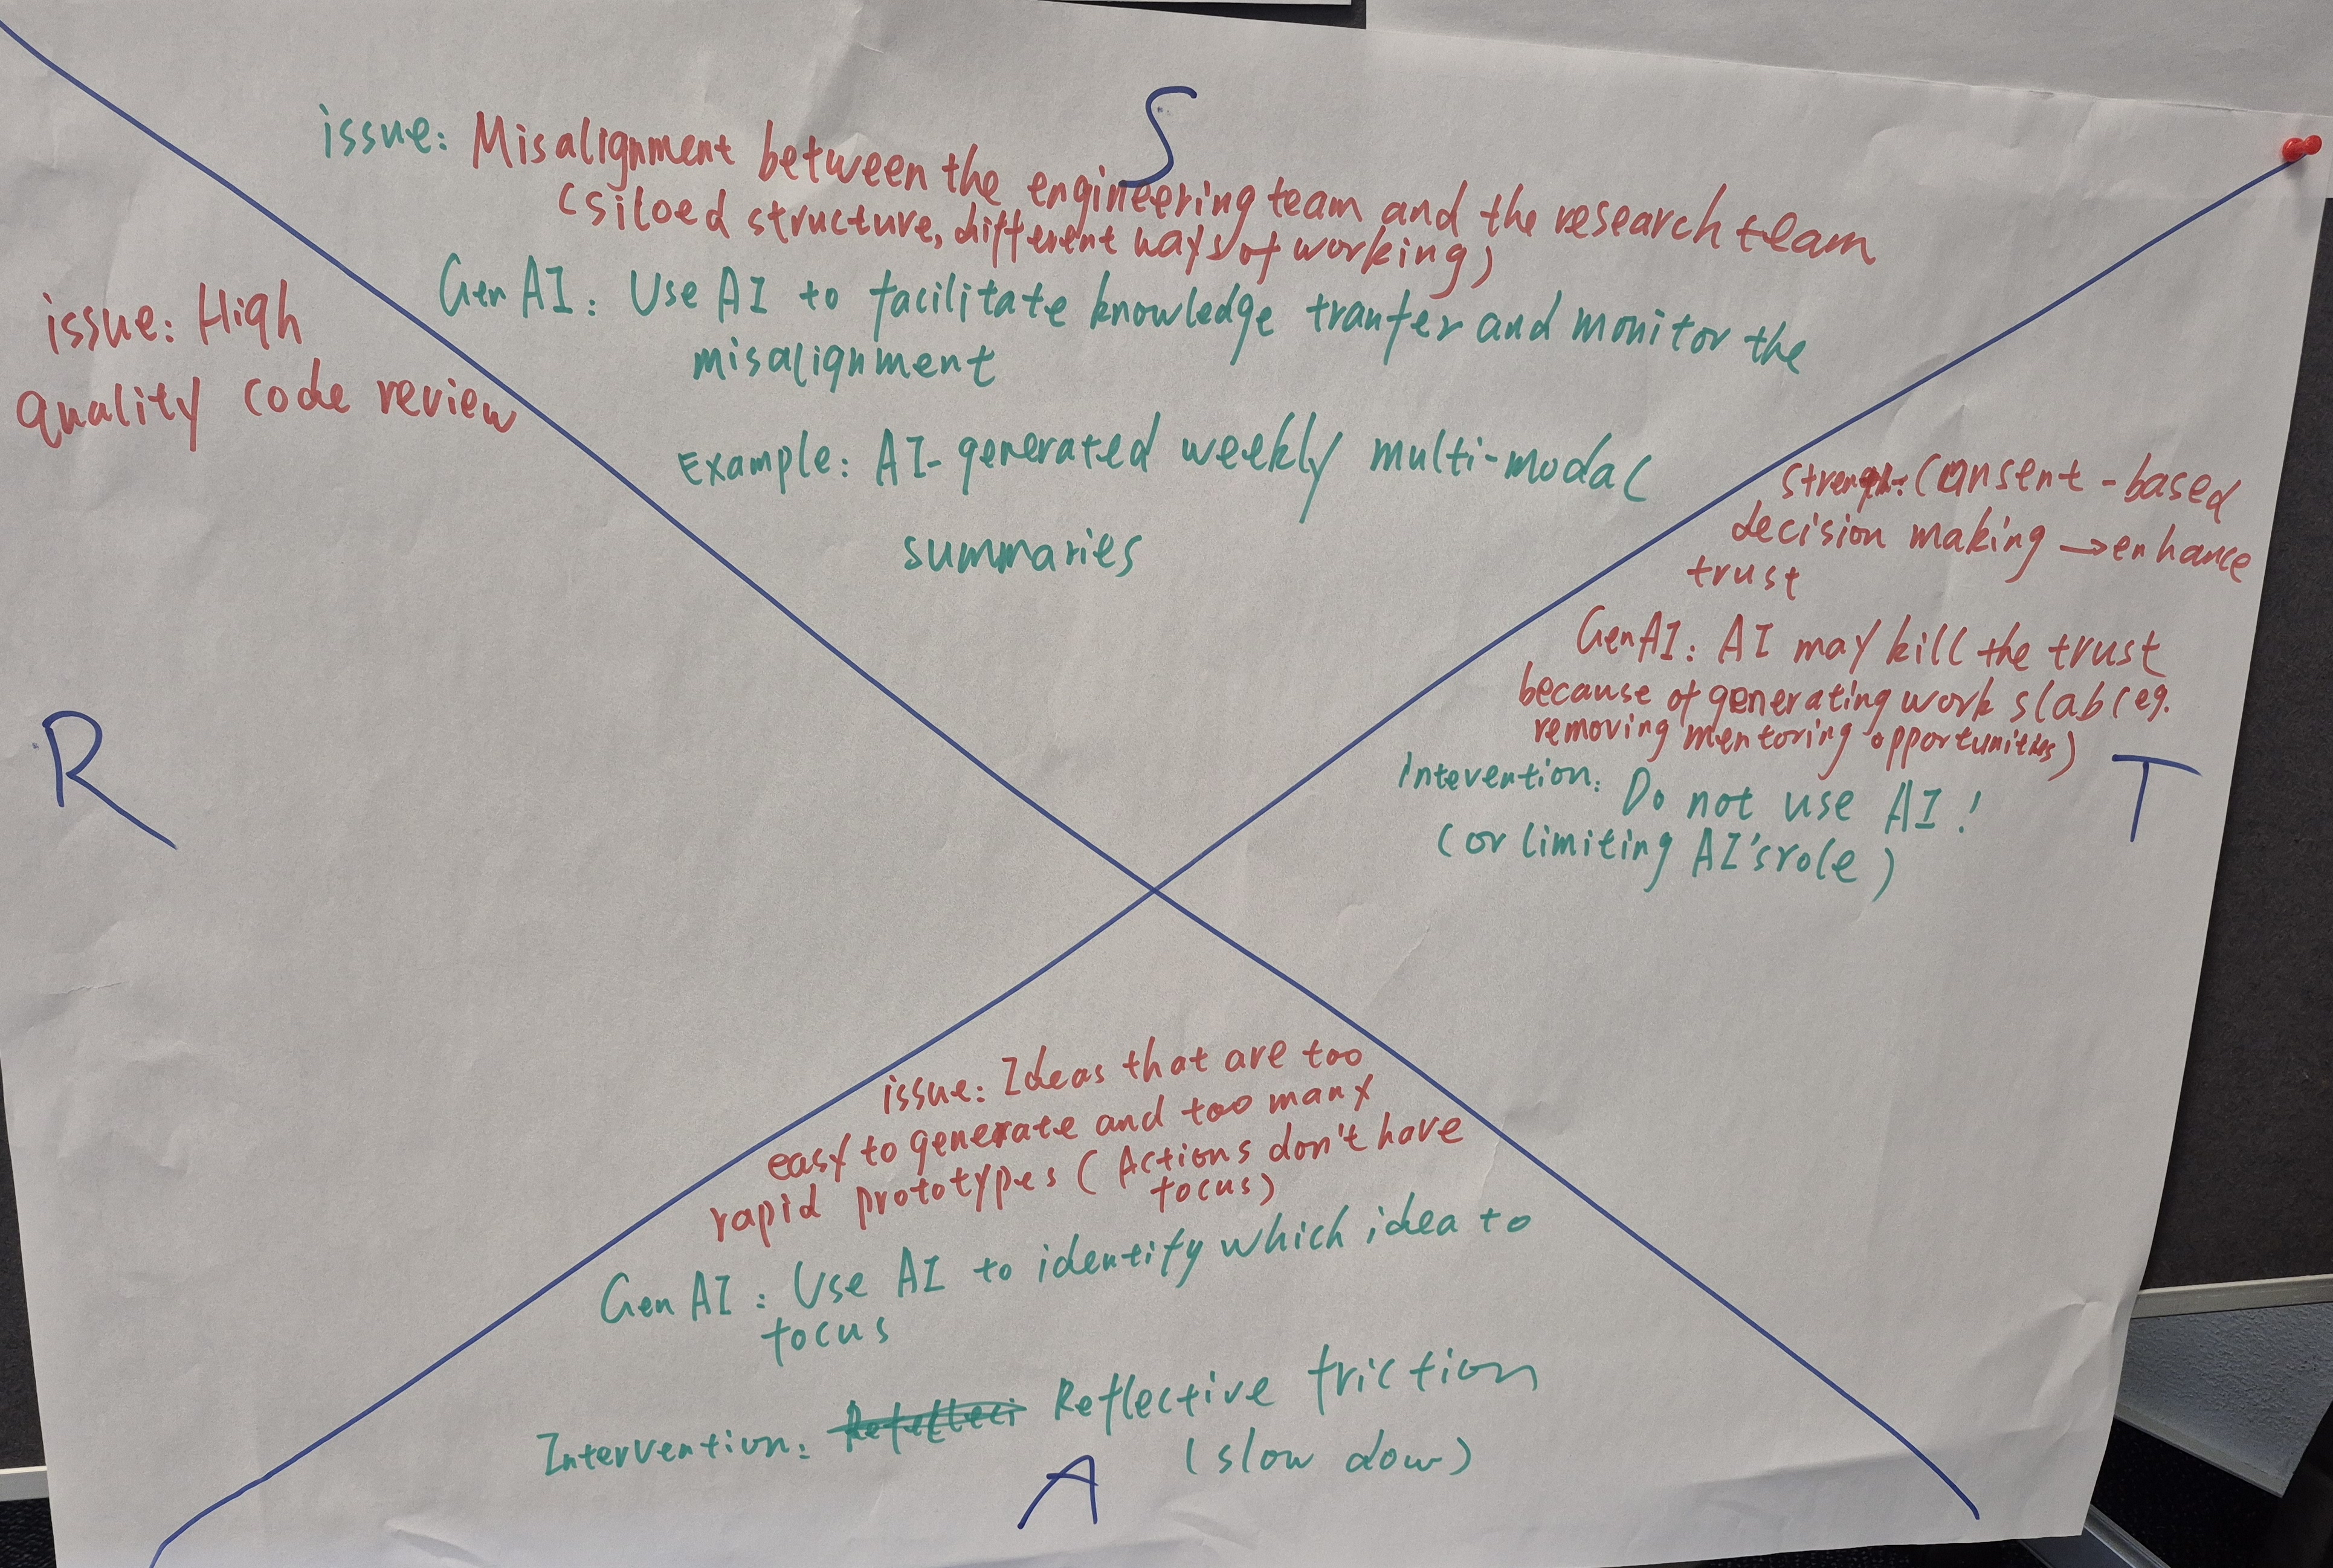 S
issue: Misalignment between the engineering team and the research team
(siloed structure, different ways of working)
Gen AI: Use AI to facilitate knowledge tranfer and monitor the
misalignment
Example: AI-generated weekly multi-modal
summaries
issue: High
quality code review
R
Strength: Consent-based
decision making → enhance
trust
Gen AI: AI may kill the trust
because of generating work slab (eg.
removing mentoring opportunities)
Intevention: Do not use AI!
(or limiting AI's role)
T
issue: Ideas that are too
easy to generate and too many
rapid prototypes (Actions don't have
focus)
Gen AI: Use AI to identify which idea to
focus
Intervention: Reflective friction
(slow dow)
A